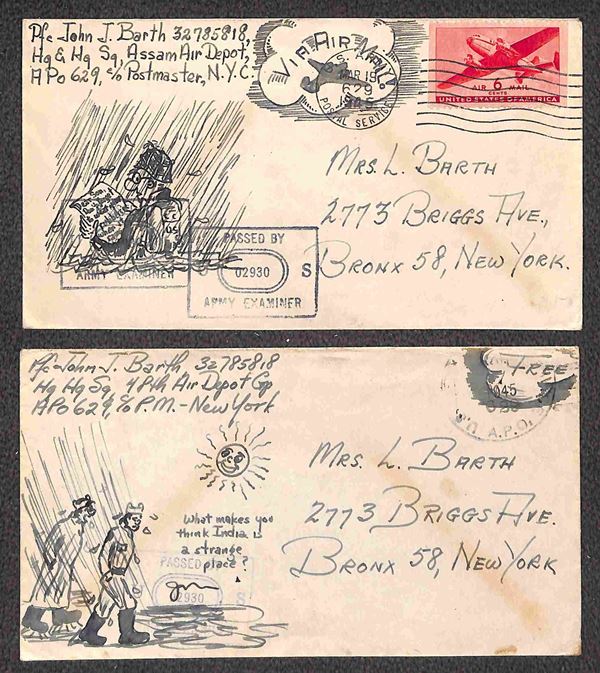 Pfc John J. Barth 32785818,
Hq & Hq Sq, Assam Air Depot,
APO 629, c/o Postmaster, N.Y.C.
VIA AIR MAIL
MAR 19
629
POSTAL SERVICE
AIR 6 MAIL
CENTS
UNITED STATES OF AMERICA
MRS. L. BARTH
2773 BRIGGS AVE.,
BRONX 58, NEW YORK.
ARMY EXAMINER
PASSED BY
02930 S
ARMY EXAMINER
Pfc John J. Barth 32785818
Hq Hq Sq, 4 Air Depot Gp
APO 629, c/o P.M. - New York
FREE
A.P.O.
MRS. L. BARTH
2773 BRIGGS AVE.
BRONX 58, NEW YORK
What makes you
think India is
a strange
place?
PASSED
2930 S